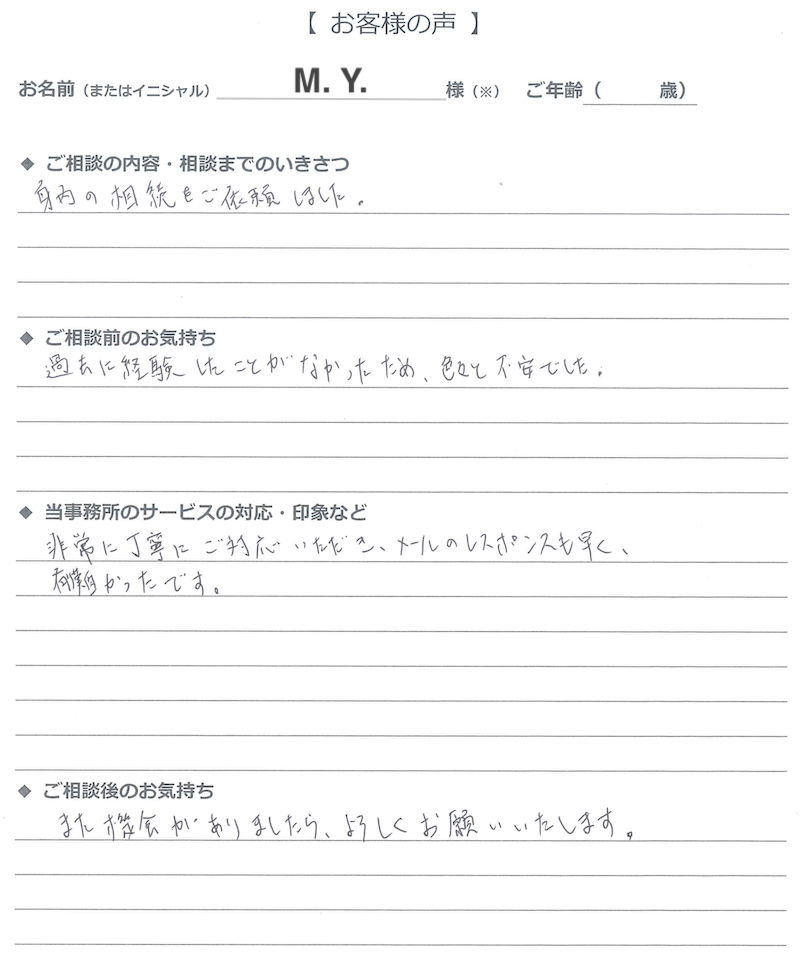 【 お客様の声 】
お名前（またはイニシャル） M. Y. 様（※） ご年齢（ 歳）
◆ ご相談の内容・相談までのいきさつ
身内の相続をご依頼しました。
◆ ご相談前のお気持ち
過去に経験したことがなかったため、色々と不安でした。
◆ 当事務所のサービスの対応・印象など
非常に丁寧にご対応いただき、メールのレスポンスも早く、
有難かったです。
◆ ご相談後のお気持ち
また機会がありましたら、よろしくお願いいたします。